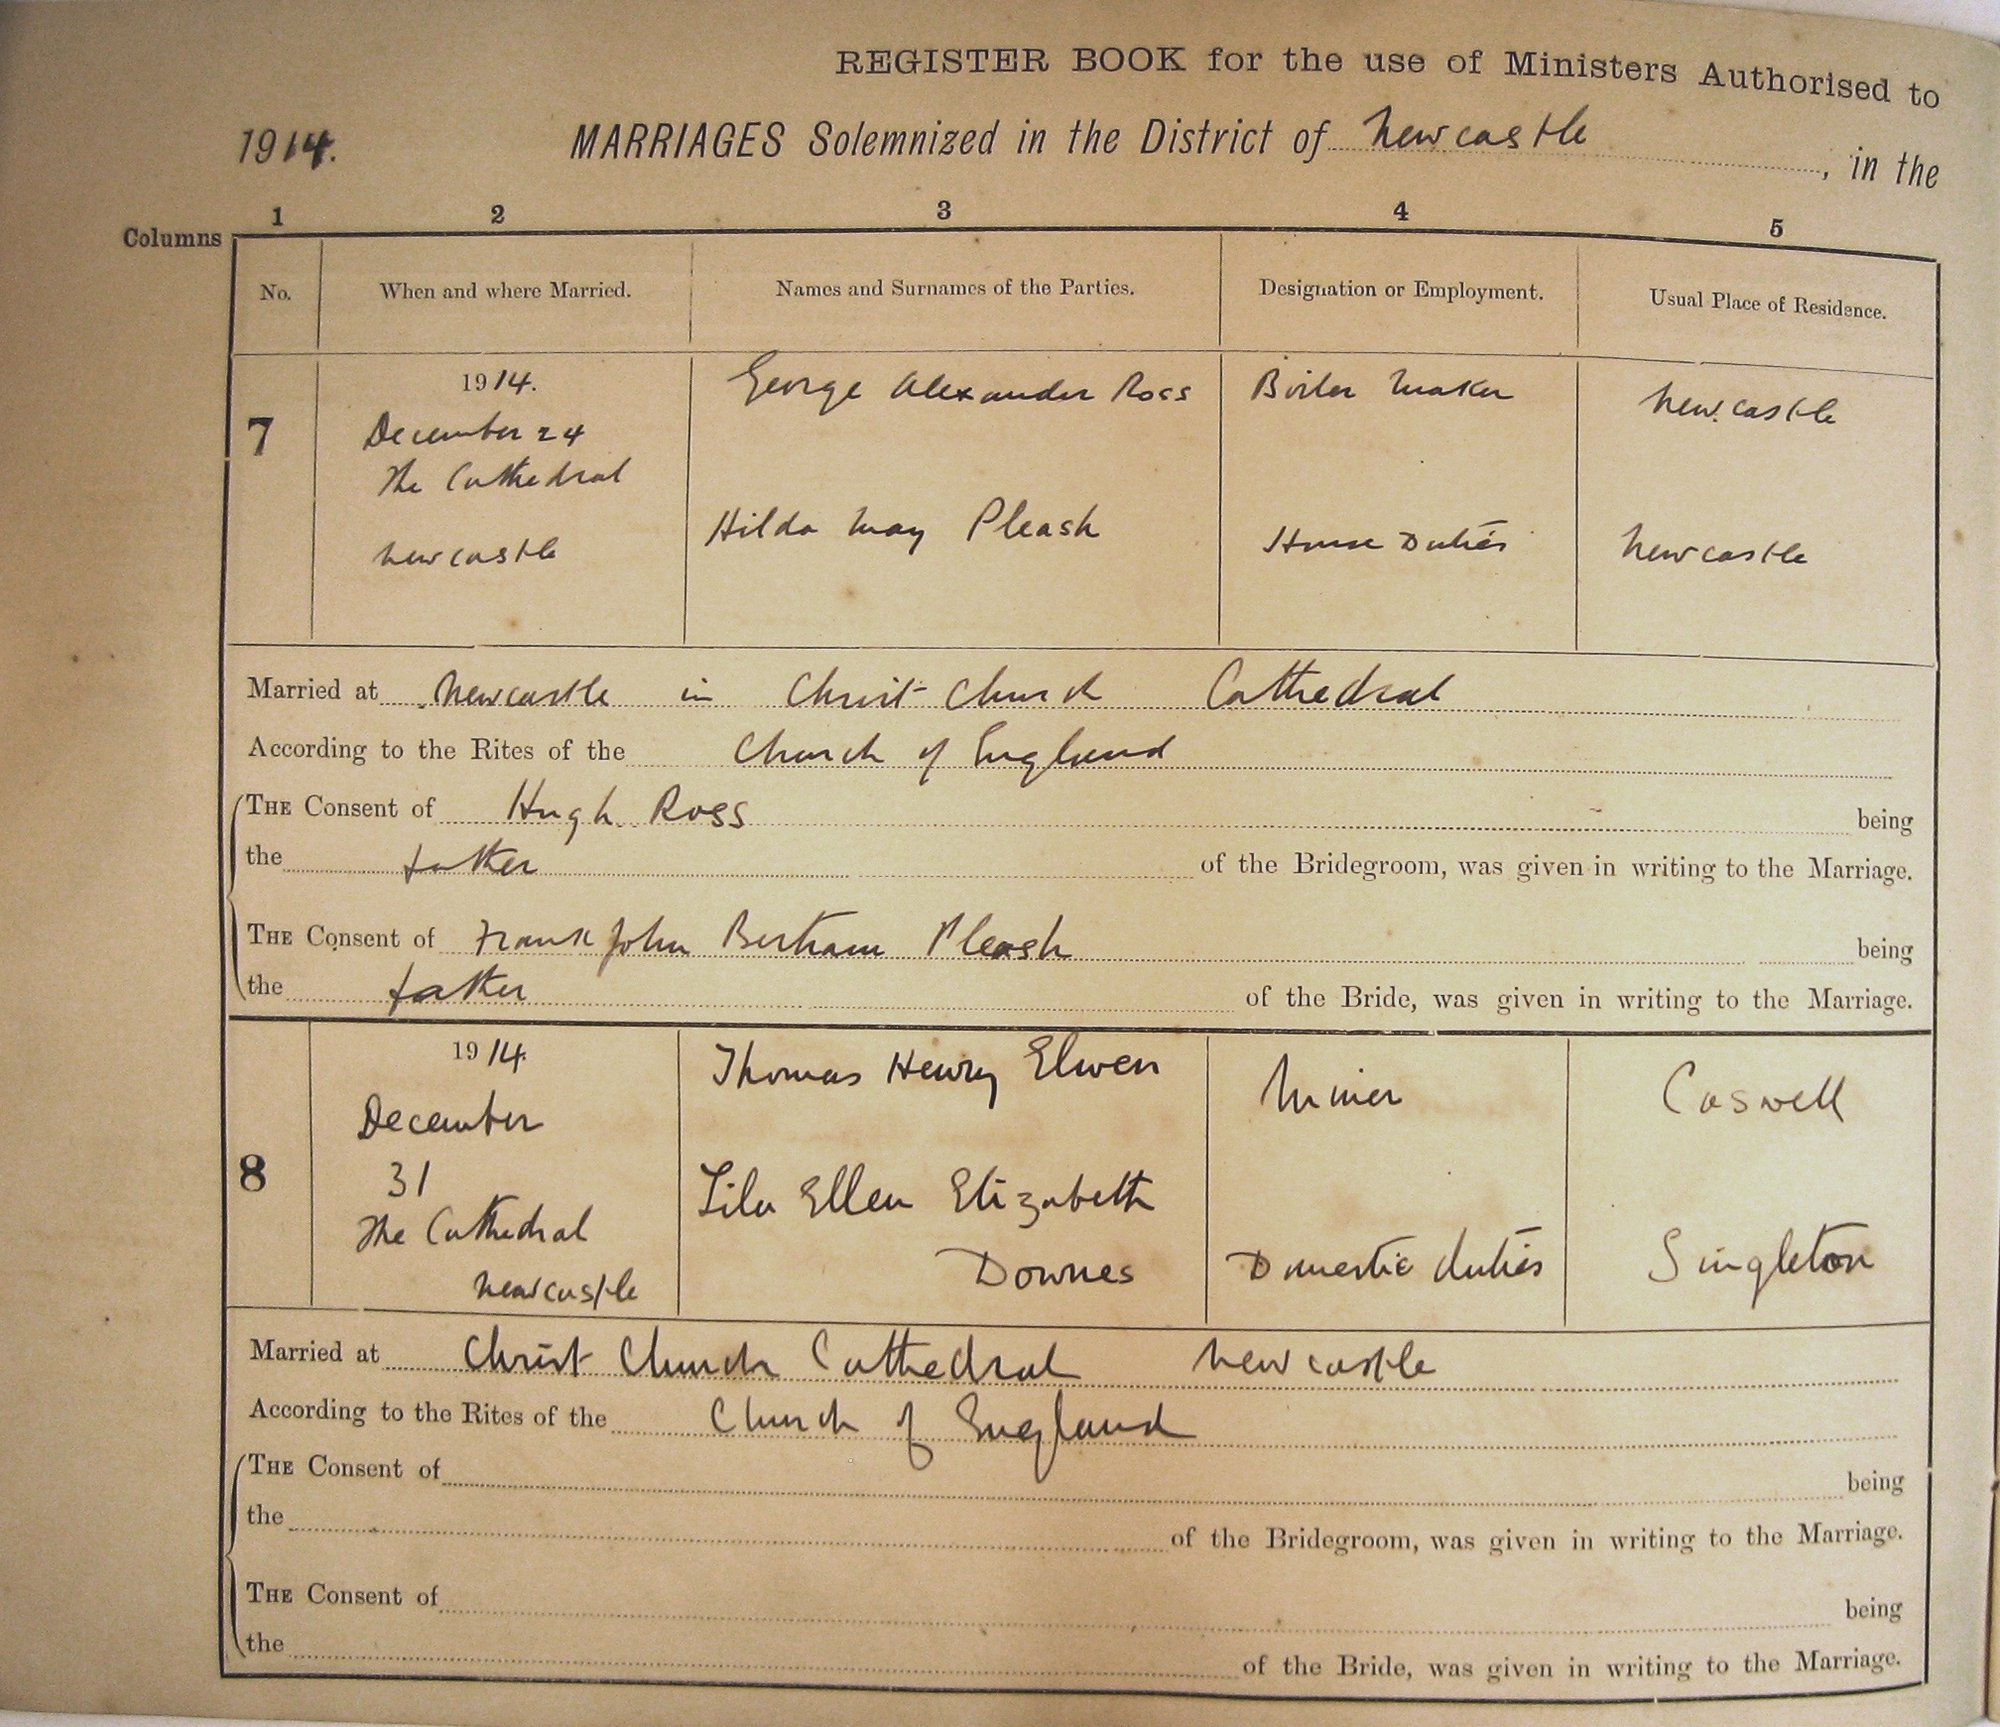 REGISTER BOOK for the use of Ministers Authorised to
1914. MARRIAGES Solemnized in the District of Newcastle, in the
Columns 1 2 3 4 5
No. When and where Married. Names and Surnames of the Parties. Designation or Employment. Usual Place of Residence.
1914. George Alexander Ross Boiler Maker Newcastle
7 December 24
The Cathedral
Newcastle Hilda May Pleash House Duties Newcastle
Married at Newcastle in Christ Church Cathedral
According to the Rites of the Church of England
THE Consent of Hugh Ross being
the father of the Bridegroom, was given in writing to the Marriage.
THE Consent of Frank John Bertram Pleash being
the father of the Bride, was given in writing to the Marriage.
1914. Thomas Henry Elwen Miner Caswell
December
8 31 Lila Ellen Elizabeth
The Cathedral Downes Domestic duties Singleton
Newcastle
Married at Christ Church Cathedral Newcastle
According to the Rites of the Church of England
THE Consent of being
the of the Bridegroom, was given in writing to the Marriage.
THE Consent of being
the of the Bride, was given in writing to the Marriage.